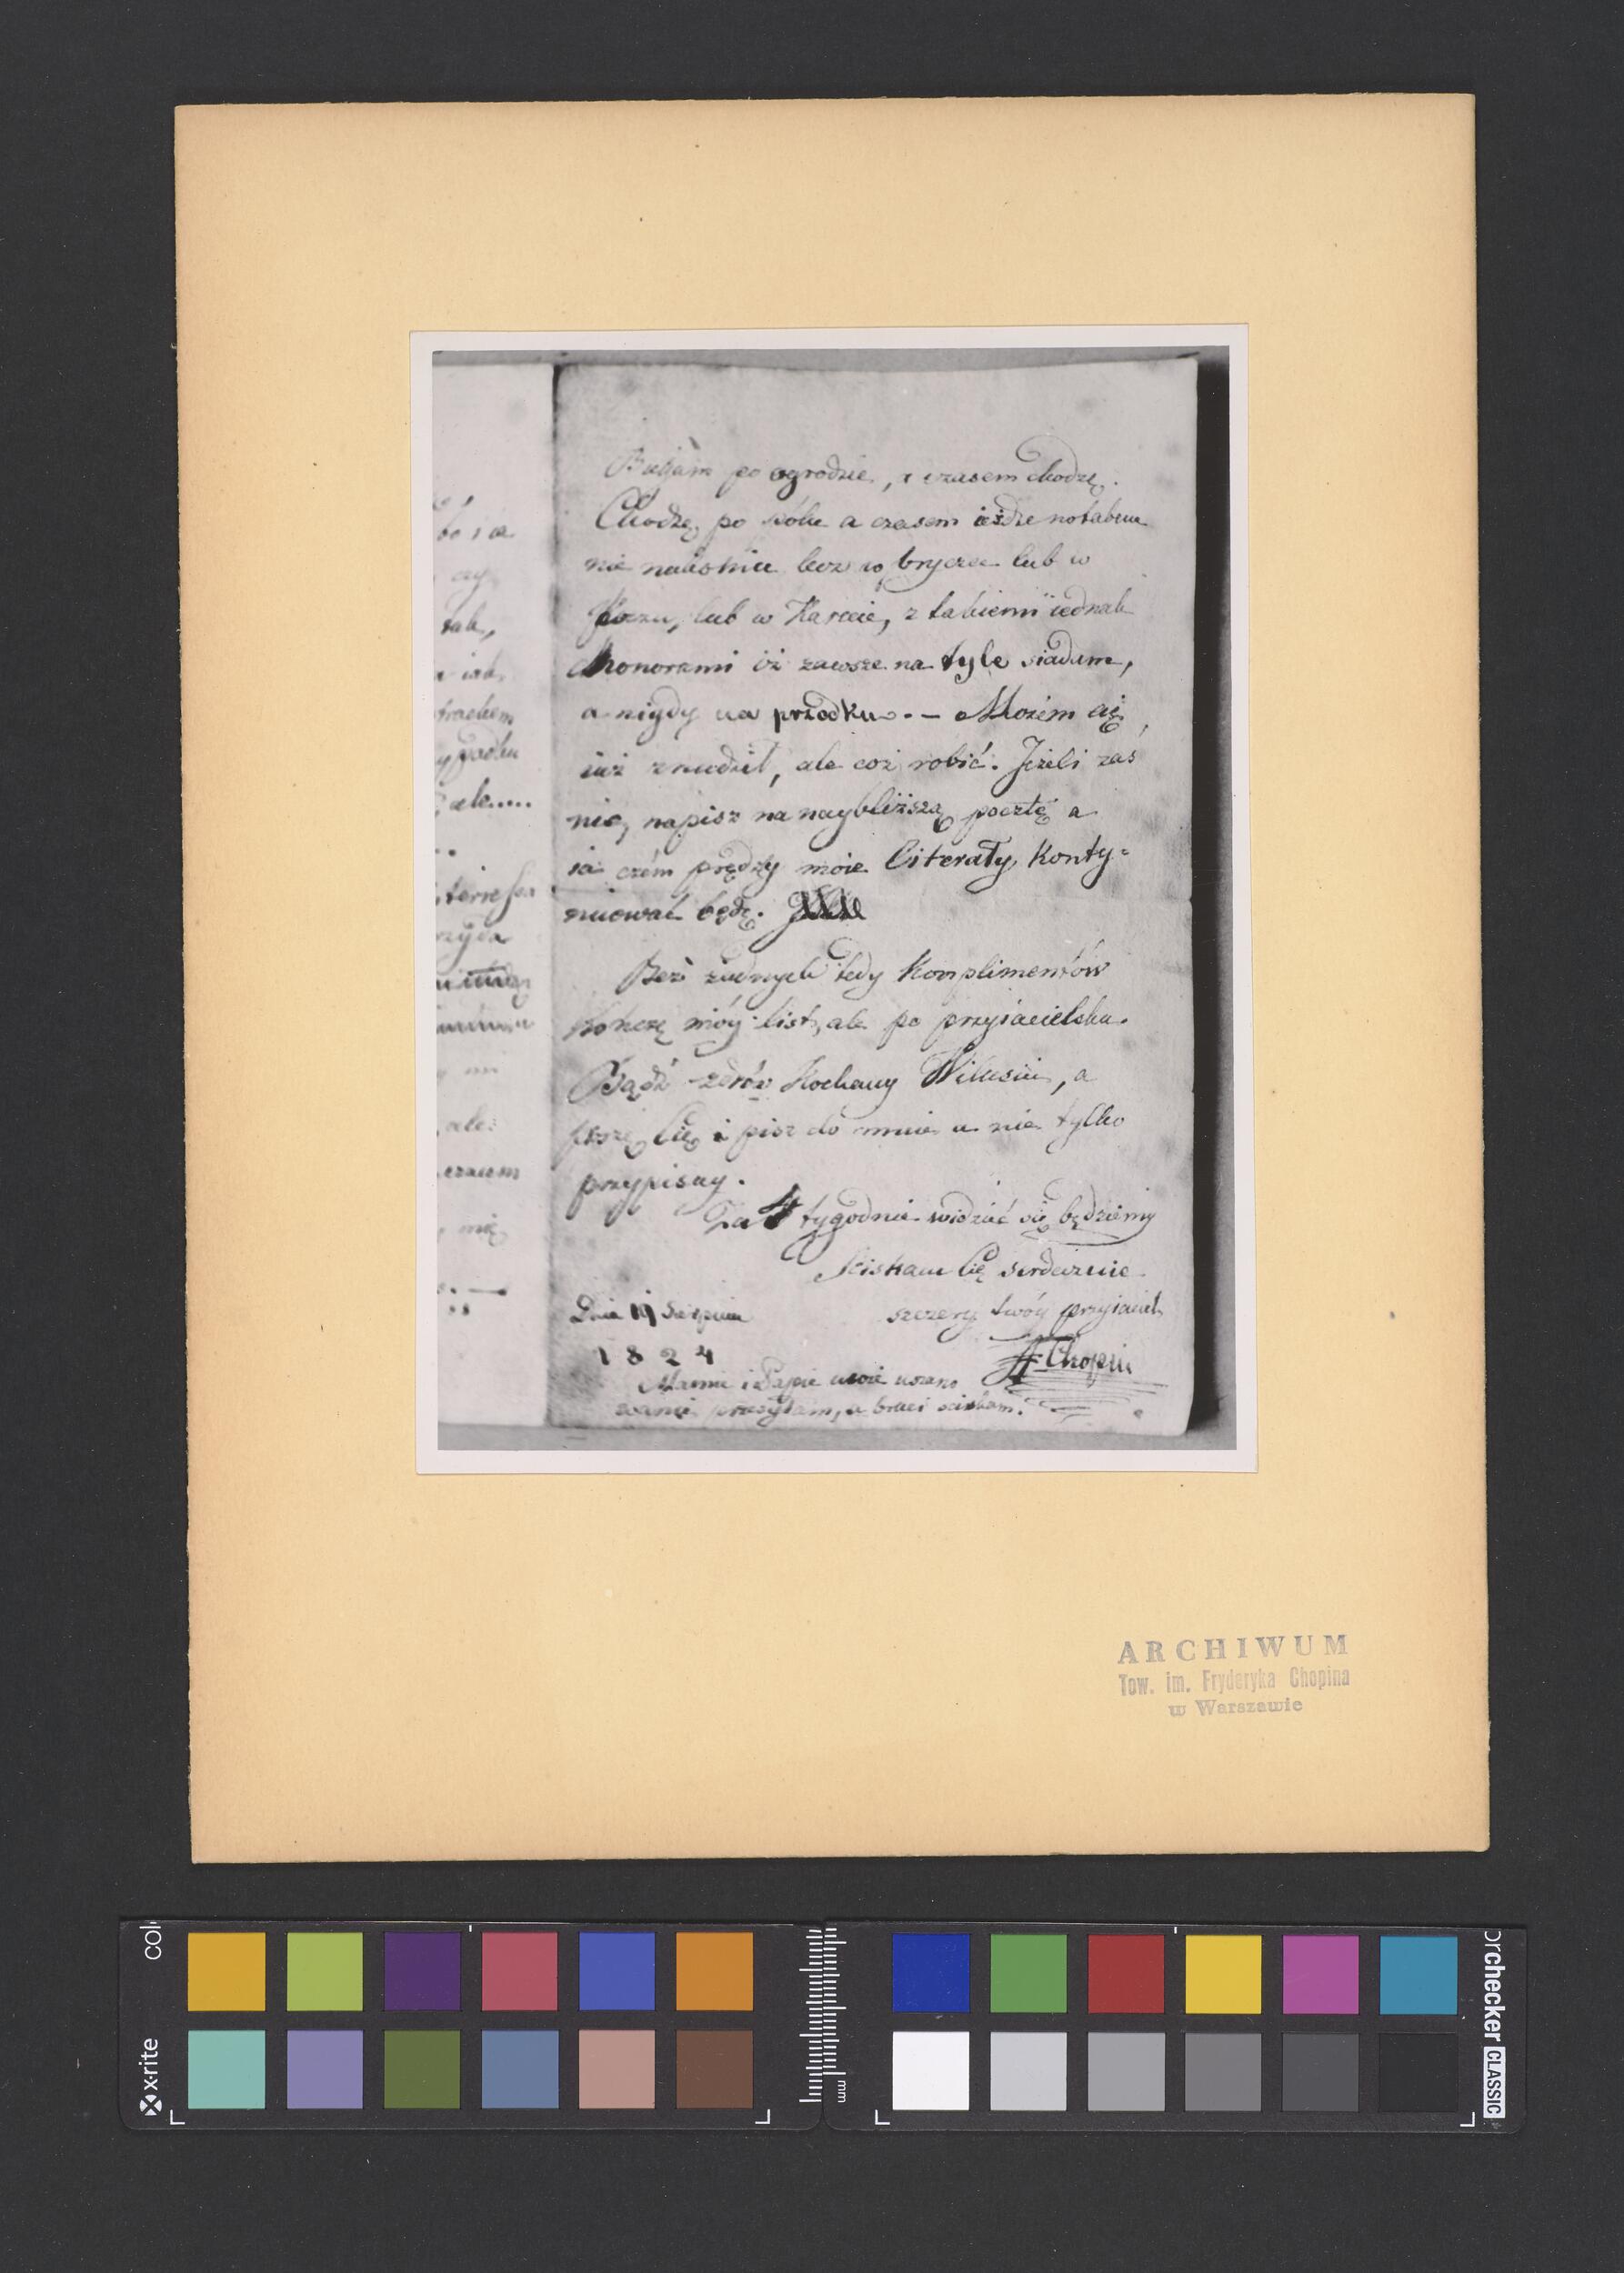 Bujam po ogrodzie, i czasem chodzę.
Chodzę po polu a czasem jeżdże notabene
nie na koniu lecz w bryczce lub w
Koczu, lub w Karecie, z takiemi iednak
Honorami iż zawsze na tyle siadam,
a nigdy na przodku. - Możem cię
iuż znudził, ale coż robić. Jeżeli zaś
nie, napisz na naybliższą pocztę a
ia czém prędzy moie literały konty=
niuować będę.
Bez żadnych tedy Komplimentów
kończę móy list, ale po przyiacielsku.
Bądź zdrów Kochany Wilusiu, a
proszę Cię i pisz do mnie a nie tylko
przypisuy.
Za 4 tygodnie widzieć się będziemy
Sciskam Cię serdecznie
szczery twóy przyiaciel
Dnia 19 Sierpnia
1824
F Chopin
Mamie i Papie moie uszano
wanie przesyłam, a braci sciskam.
bo i a
czy
tak,
trachem
ale.....
ale
czasem
mię
ARCHIWUM
Tow. im. Fryderyka Chopina
w Warszawie
x-rite
col
mm
rchecker CLASSIC